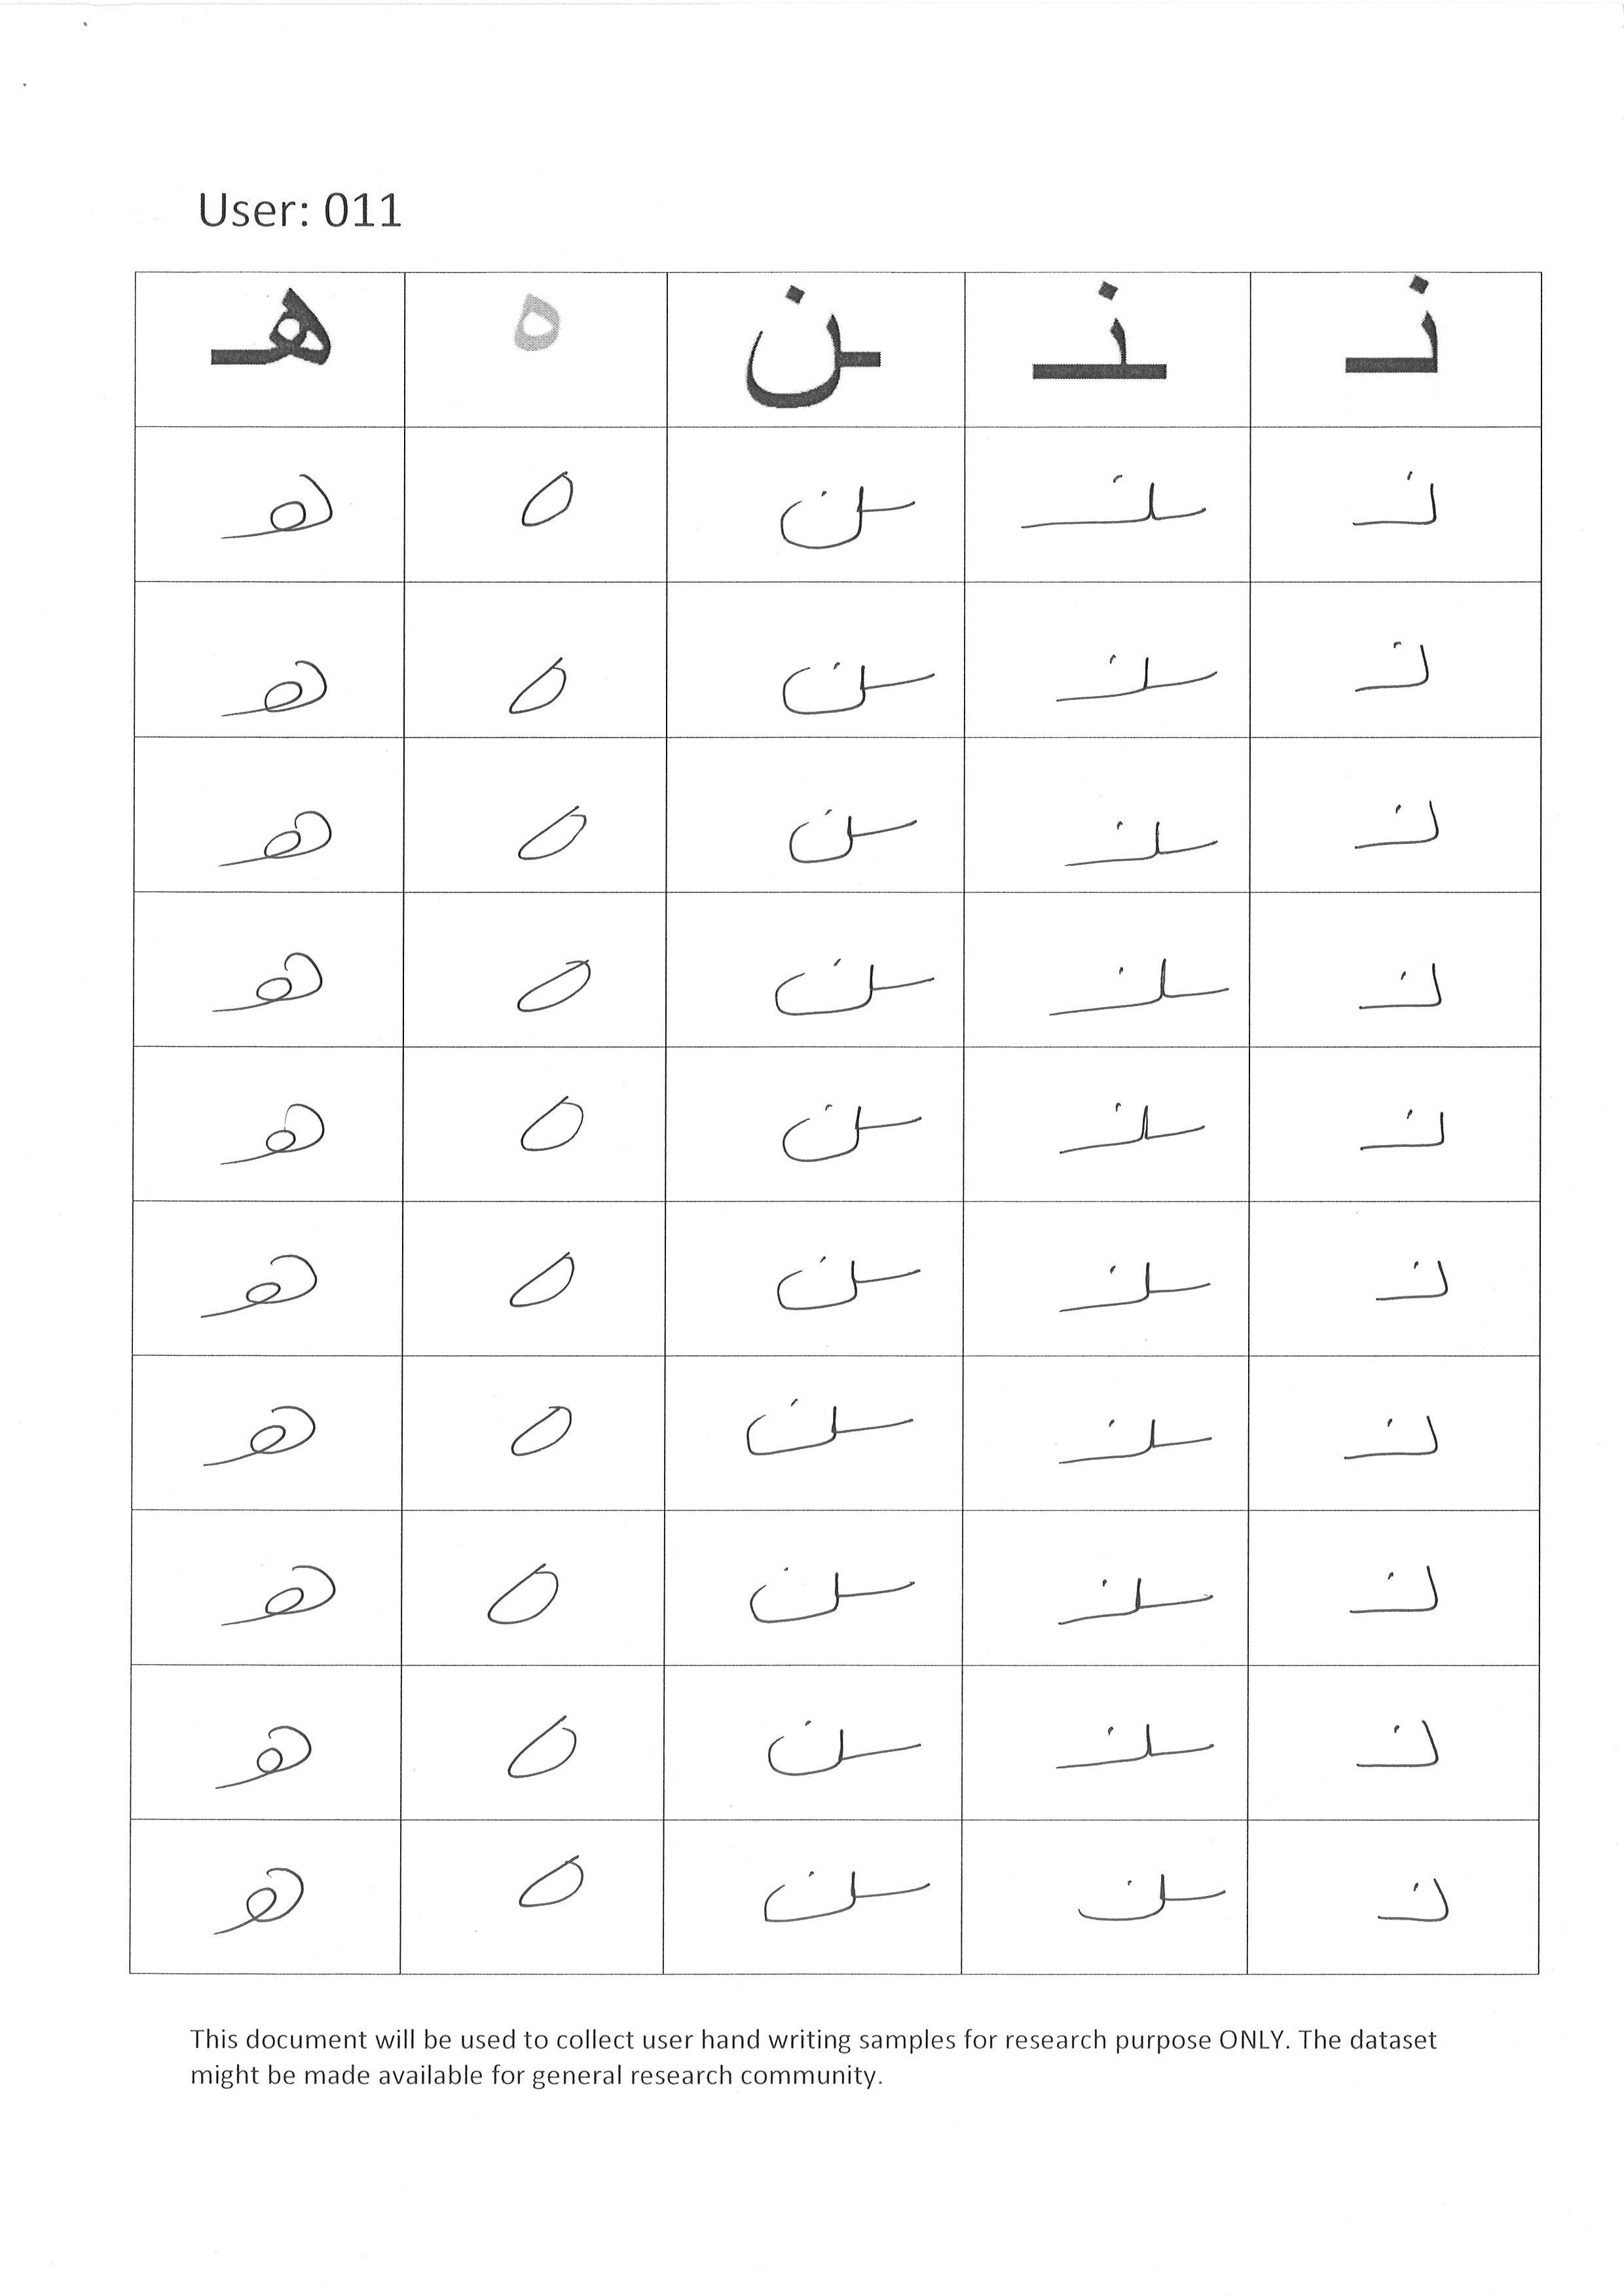 User: 011
نـ ـنـ ـن ه هـ
نـ ـنـ ـن ه هـ
نـ ـنـ ـن ه هـ
نـ ـنـ ـن ه هـ
نـ ـنـ ـن ه هـ
نـ ـنـ ـن ه هـ
نـ ـنـ ـن ه هـ
نـ ـنـ ـن ه هـ
نـ ـنـ ـن ه هـ
نـ ـنـ ـن ه هـ
نـ ـنـ ـن ه هـ
This document will be used to collect user hand writing samples for research purpose ONLY. The dataset
might be made available for general research community.